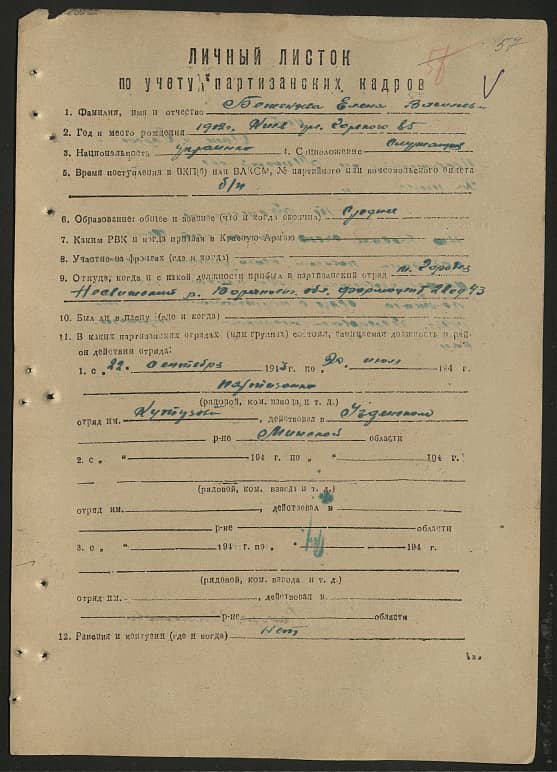 57
ЛИЧНЫЙ ЛИСТОК
по учету партизанских кадров
1. Фамилия, имя и отчество Елена
2. Год и место рождения 1912г. Киев ул. Горького 85
3. Национальность украинка 4. Соцположение служащая
5. Время поступления в ВКП(б) или ВЛКСМ, № партийного или комсомольского билета
б/п
6. Образование: общее и военное (что и когда окончил) Среднее
7. Каким РВК и когда призван в Красную Армию
8. Участие на фронтах (где и когда)
9. Откуда, когда и с какой должности прибыл в партизанский отряд
Несвижский р. обл. 43
10. Был ли в плену (где и когда)
11. В каких партизанских отрядах (или группах) состоял, занимаемая должность и рай-
он действия отряда:
1. с „22" сентября 1943 г. по „20" июль 194 г.
партизанка
(рядовой, ком. взвода и т. д.)
отряд им. Кутузова, действовал в Узденском
р-не Минской области
2. с „ " 194 г. по „ " 194 г.
(рядовой, ком. взвода и т. д.)
отряд им. , действовал в
р-не области
3. с „ " 194 г. по „ " 194 г.
(рядовой, ком. взвода и т. д.)
отряд им. , действовал в
р-не области
12. Ранения и контузии (где и когда) нет